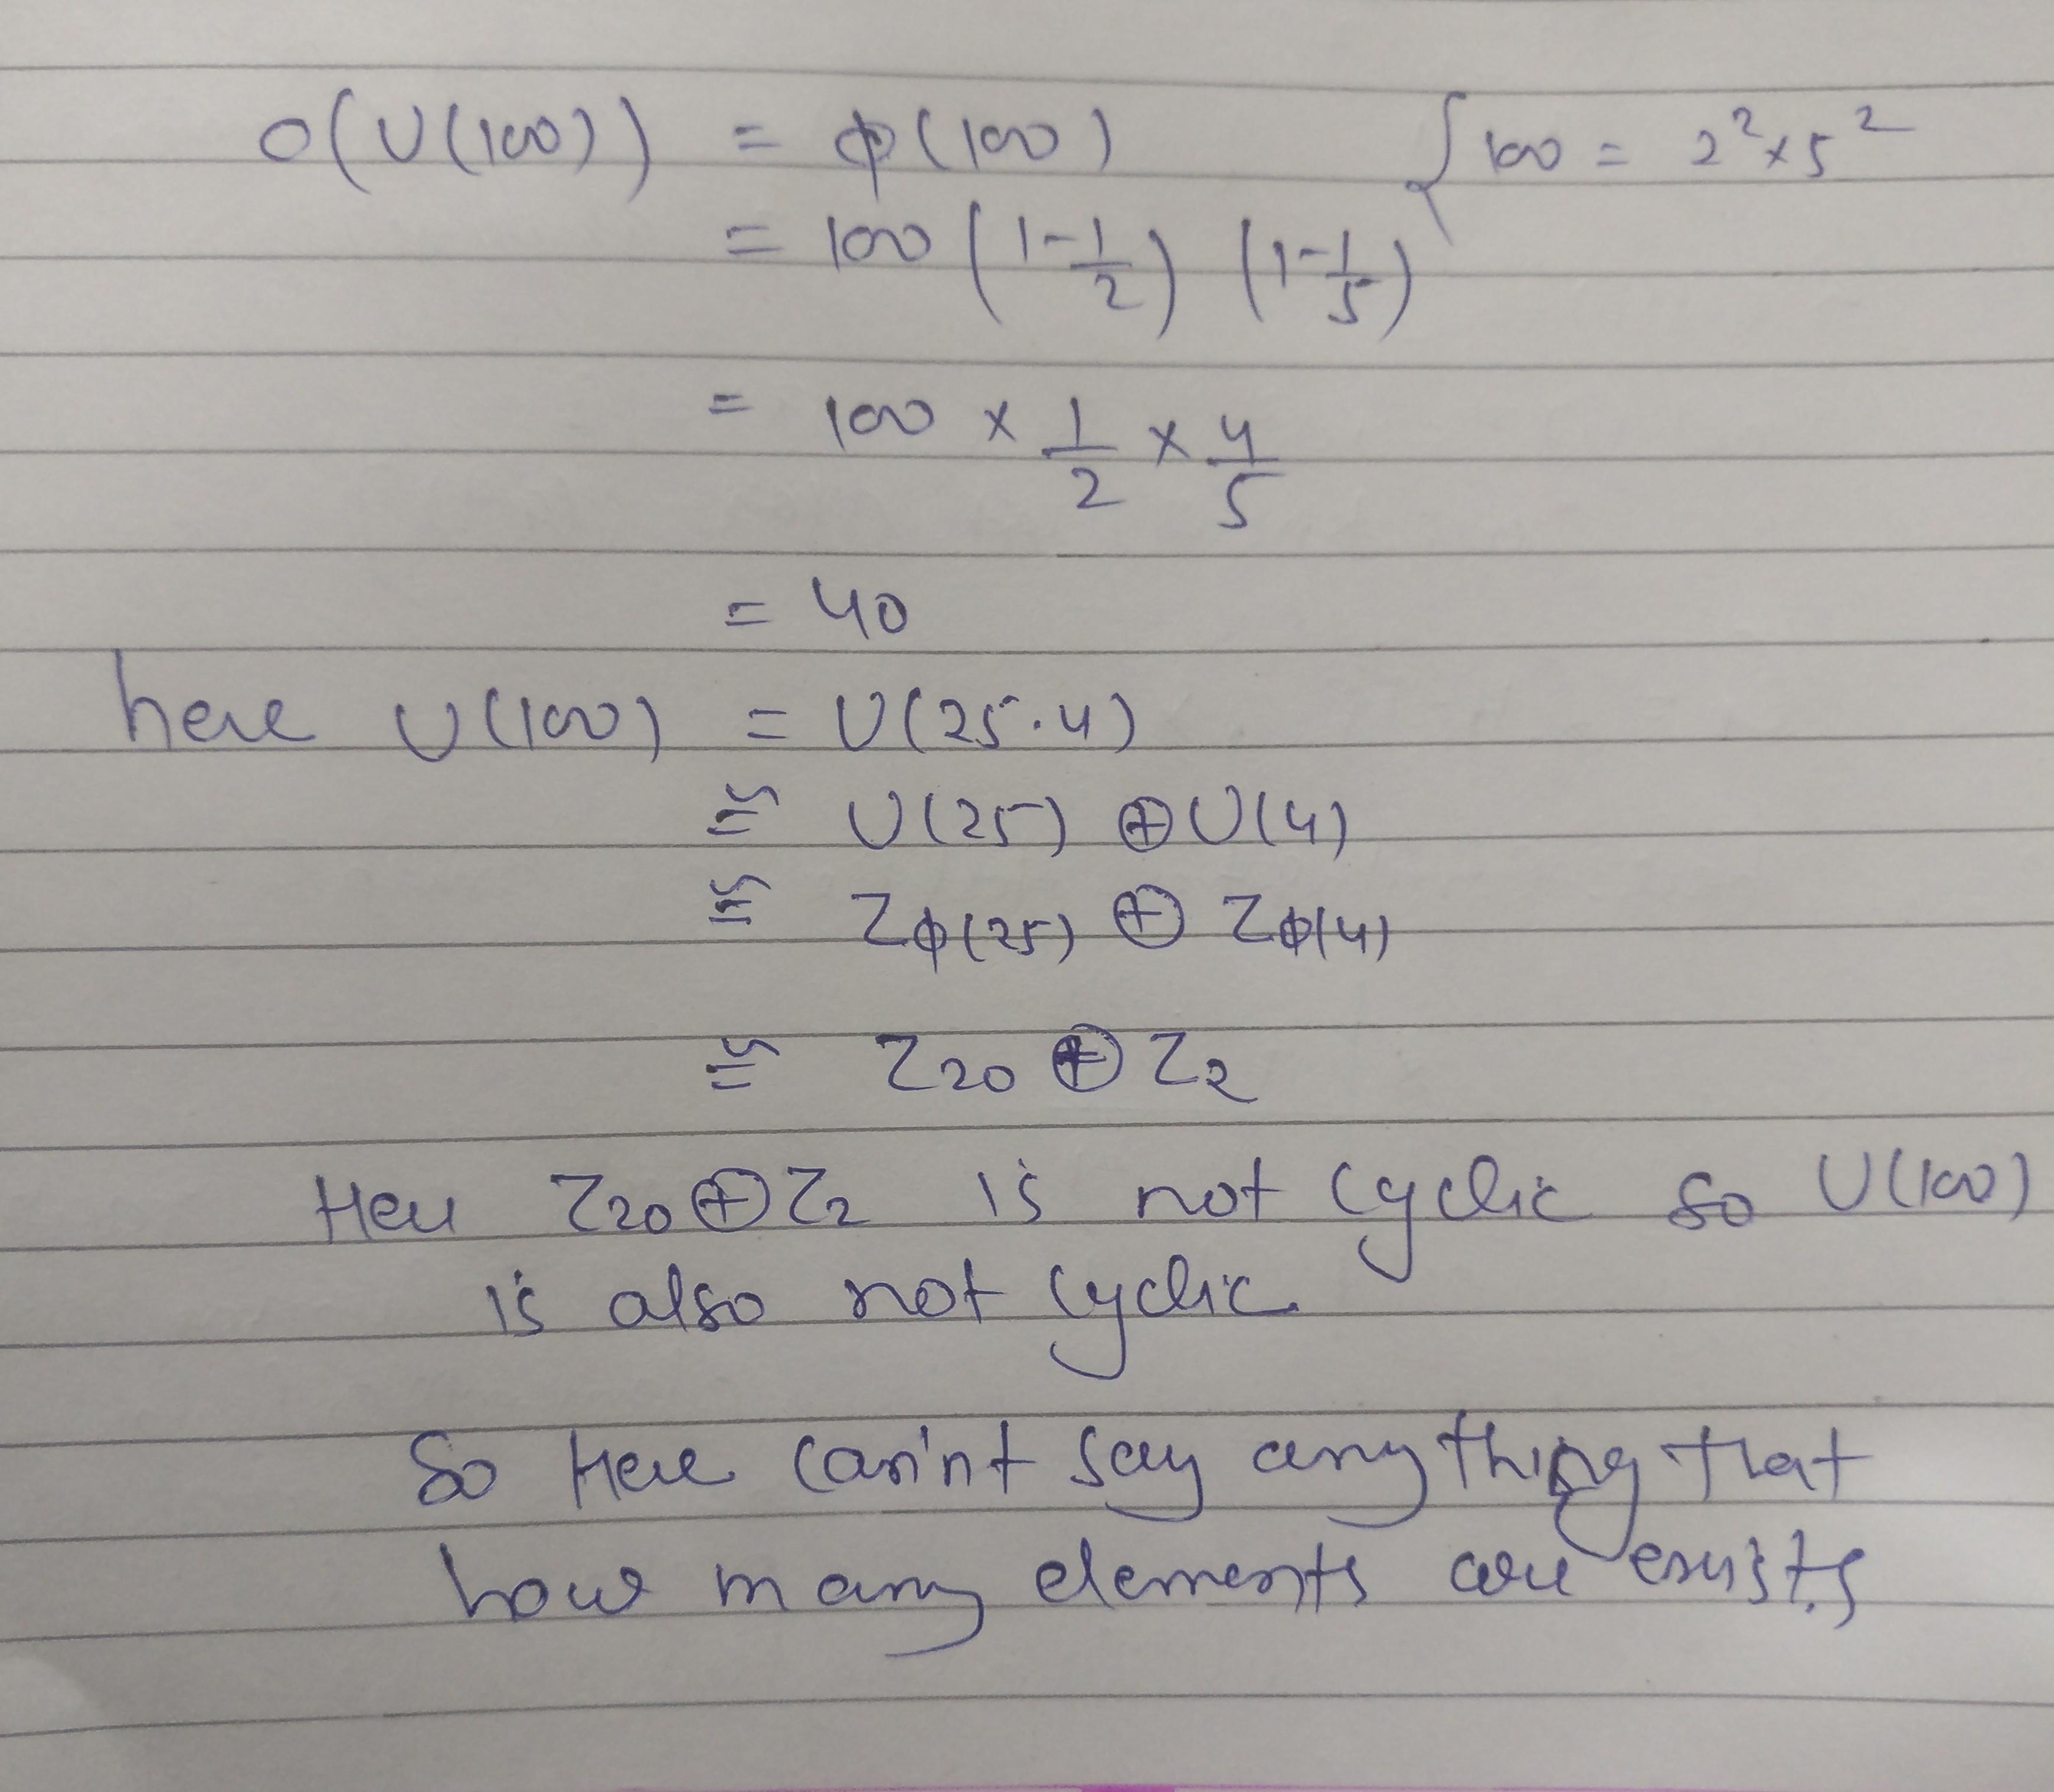 O(U(100)) = ϕ(100) { 100 = 2² × 5²
= 100 (1 - 1/2) (1 - 1/5)
= 100 × 1/2 × 4/5
= 40
here U(100) = U(25·4)
≅ U(25) ⊕ U(4)
≅ Zϕ(25) ⊕ Zϕ(4)
≅ Z₂₀ ⊕ Z₂
Here Z₂₀ ⊕ Z₂ is not cyclic so U(100)
is also not cyclic
So Here can'nt say any thing that
how many elements are exists